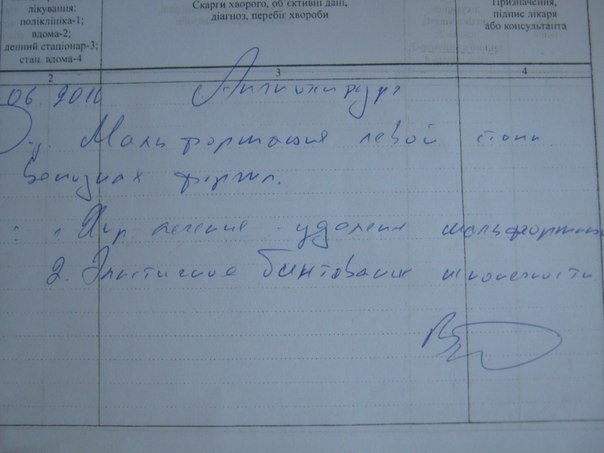 лікування:
поліклініка-1;
вдома-2;
денний стаціонар-3;
стац. вдома-4
Скарги хворого, об'єктивні дані,
діагноз, перебіг хвороби
Призначення,
підпис лікаря
або консультанта
2 3 4
06. 2010 Ангиохирург
Мальформация левой стопы
Венозная форма.
1. Хир лечение - удаление мальформации
2. Эластичное бинтование конечности